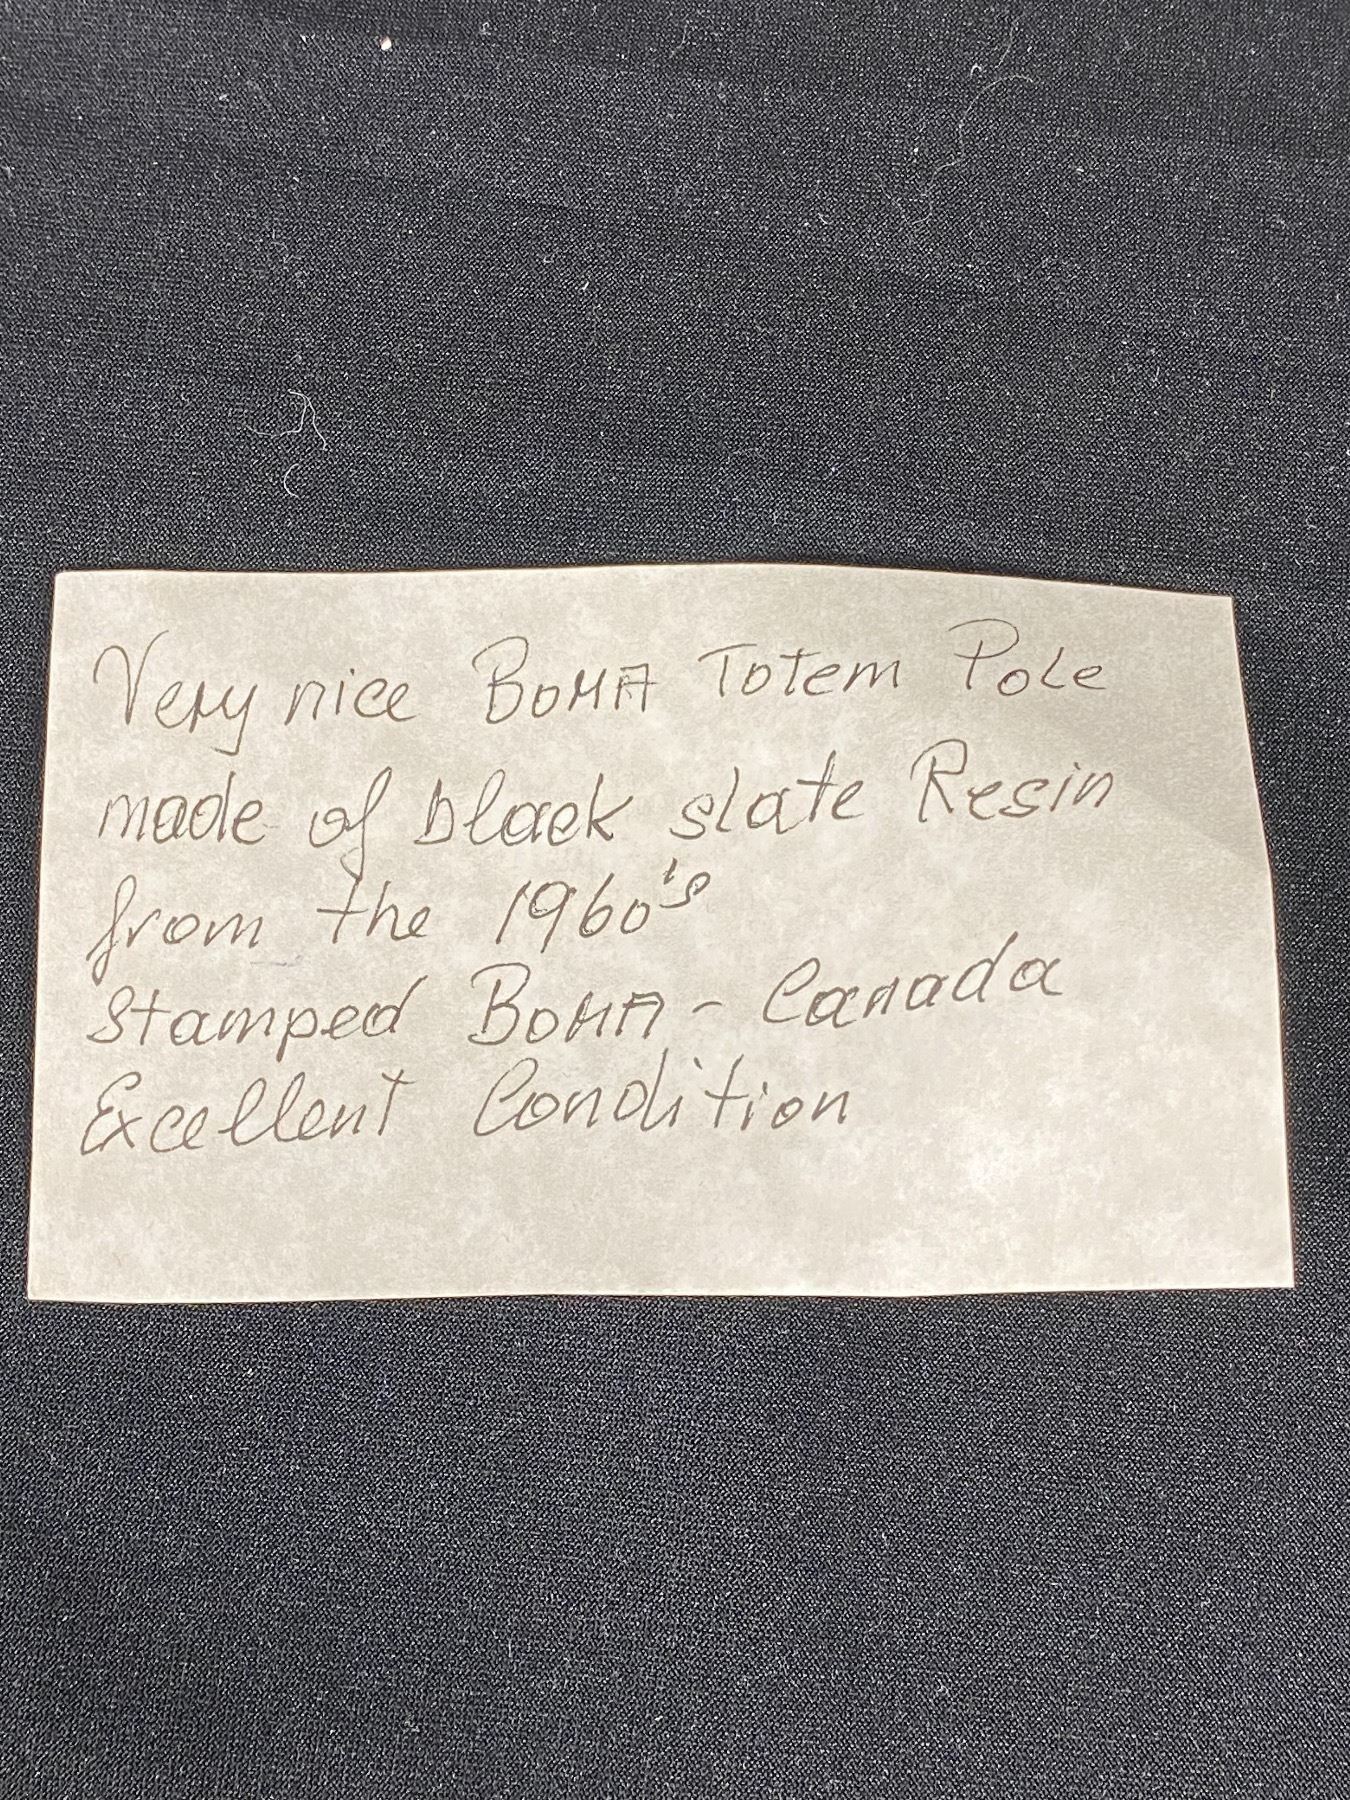 Very nice BOMA Totem Pole
made of black slate Resin
from the 1960's
Stamped BOMA - Canada
Excellent Condition